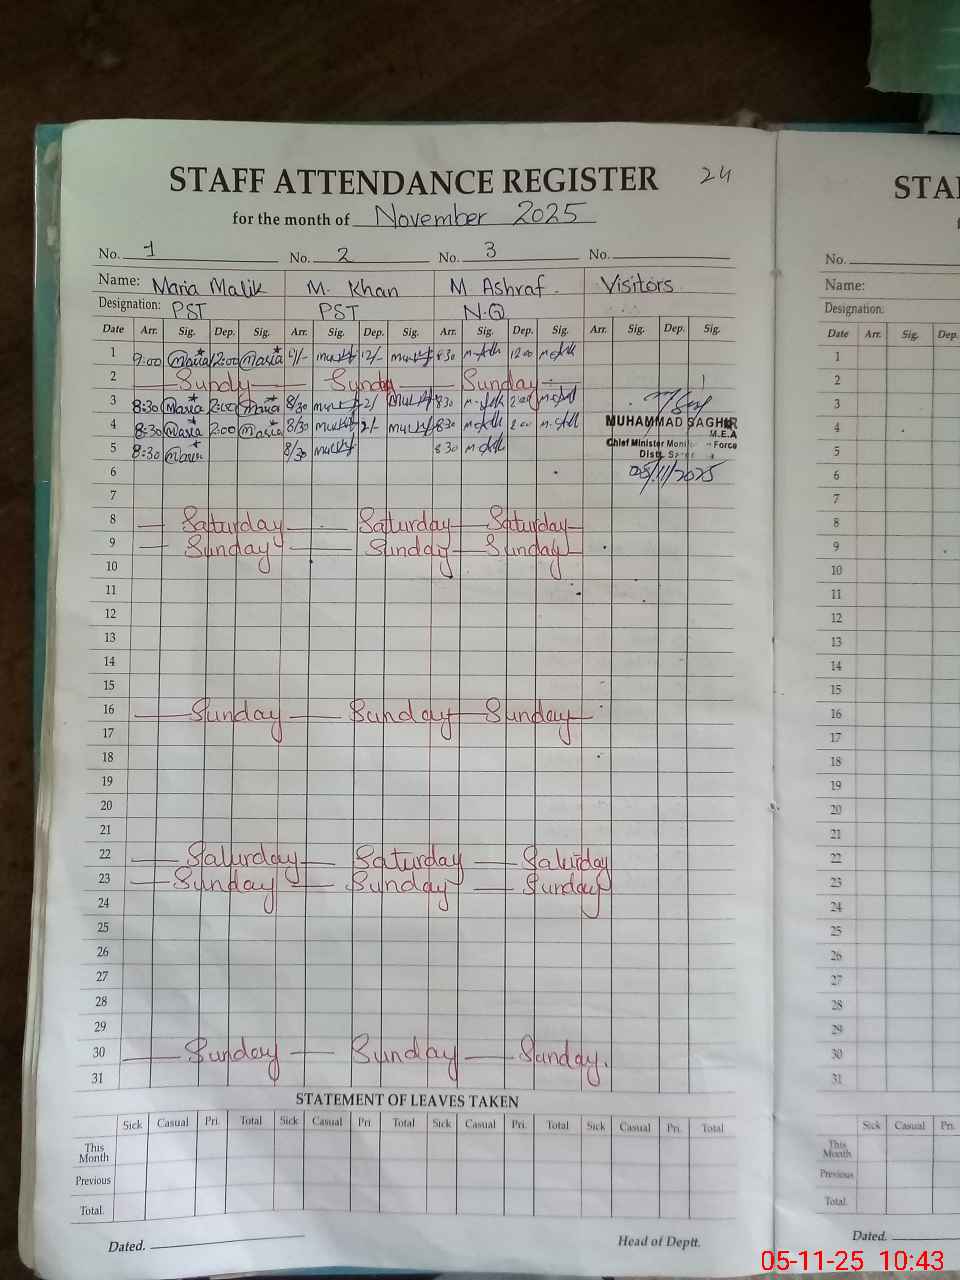 STAFF ATTENDANCE REGISTER 24
for the month of November 2025
No. 1 No. 2 No. 3 No.
Name: Maria Malik M. Khan M Ashraf. Visitors
Designation: PST PST N.Q
Date Arr. Sig. Dep. Sig. Arr. Sig. Dep. Sig. Arr. Sig. Dep. Sig. Arr. Sig. Dep. Sig.
1 9:00 Maria 12:00 Maria 9/- 12/- 8:30 12:00
2 Sundy Sunday Sunday
3 8:30 Maria 2:00 Maria 8/30 2/ 8:30 2:00
4 8:30 Maria 2:00 Maria 8/30 2/- 8:30 2:00
MUHAMMAD SAGHIR
M.E.A
Chief Minister Force
5 8:30 8/30 8:30
6 05/11/2025
7
8 Saturday Saturday Saturday
9 Sunday Sunday Sunday
10
11
12
13
14
15
16 Sunday Sunday Sunday
17
18
19
20
21
22 Saturday Saturday Saturday
23 Sunday Sunday Sunday
24
25
26
27
28
29
30 Sunday Sunday Sunday.
31
STATEMENT OF LEAVES TAKEN
Sick Casual Pri. Total Sick Casual Pri. Total Sick Casual Pri. Total Sick Casual Pri. Total
This
Month
Previous
Total.
Dated. Head of Deptt.
STA
No.
Name:
Designation:
Date Arr. Sig. Dep.
1
2
3
4
5
6
7
8
9
10
11
12
13
14
15
16
17
18
19
20
21
22
23
24
25
26
27
28
29
30
31
Sick Casual Pri.
This
Month
Previous
Total.
Dated.
05-11-25 10:43